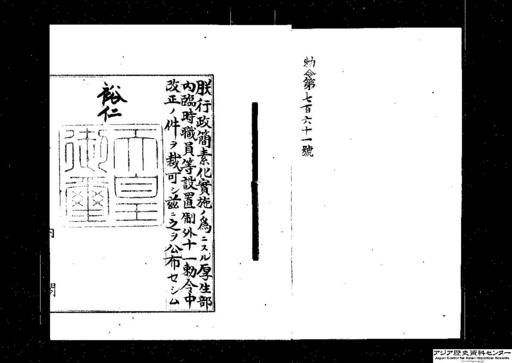 勅令第七百六十一號
朕行政簡素化實施ノ爲ニスル厚生部
内臨時職員等設置制外十一勅令中
改正ノ件ヲ裁可シ茲ニ之ヲ公布セシム
裕仁
天皇御璽
内
閣
アジア歴史資料センター
Japan Center for Asian Historical Records